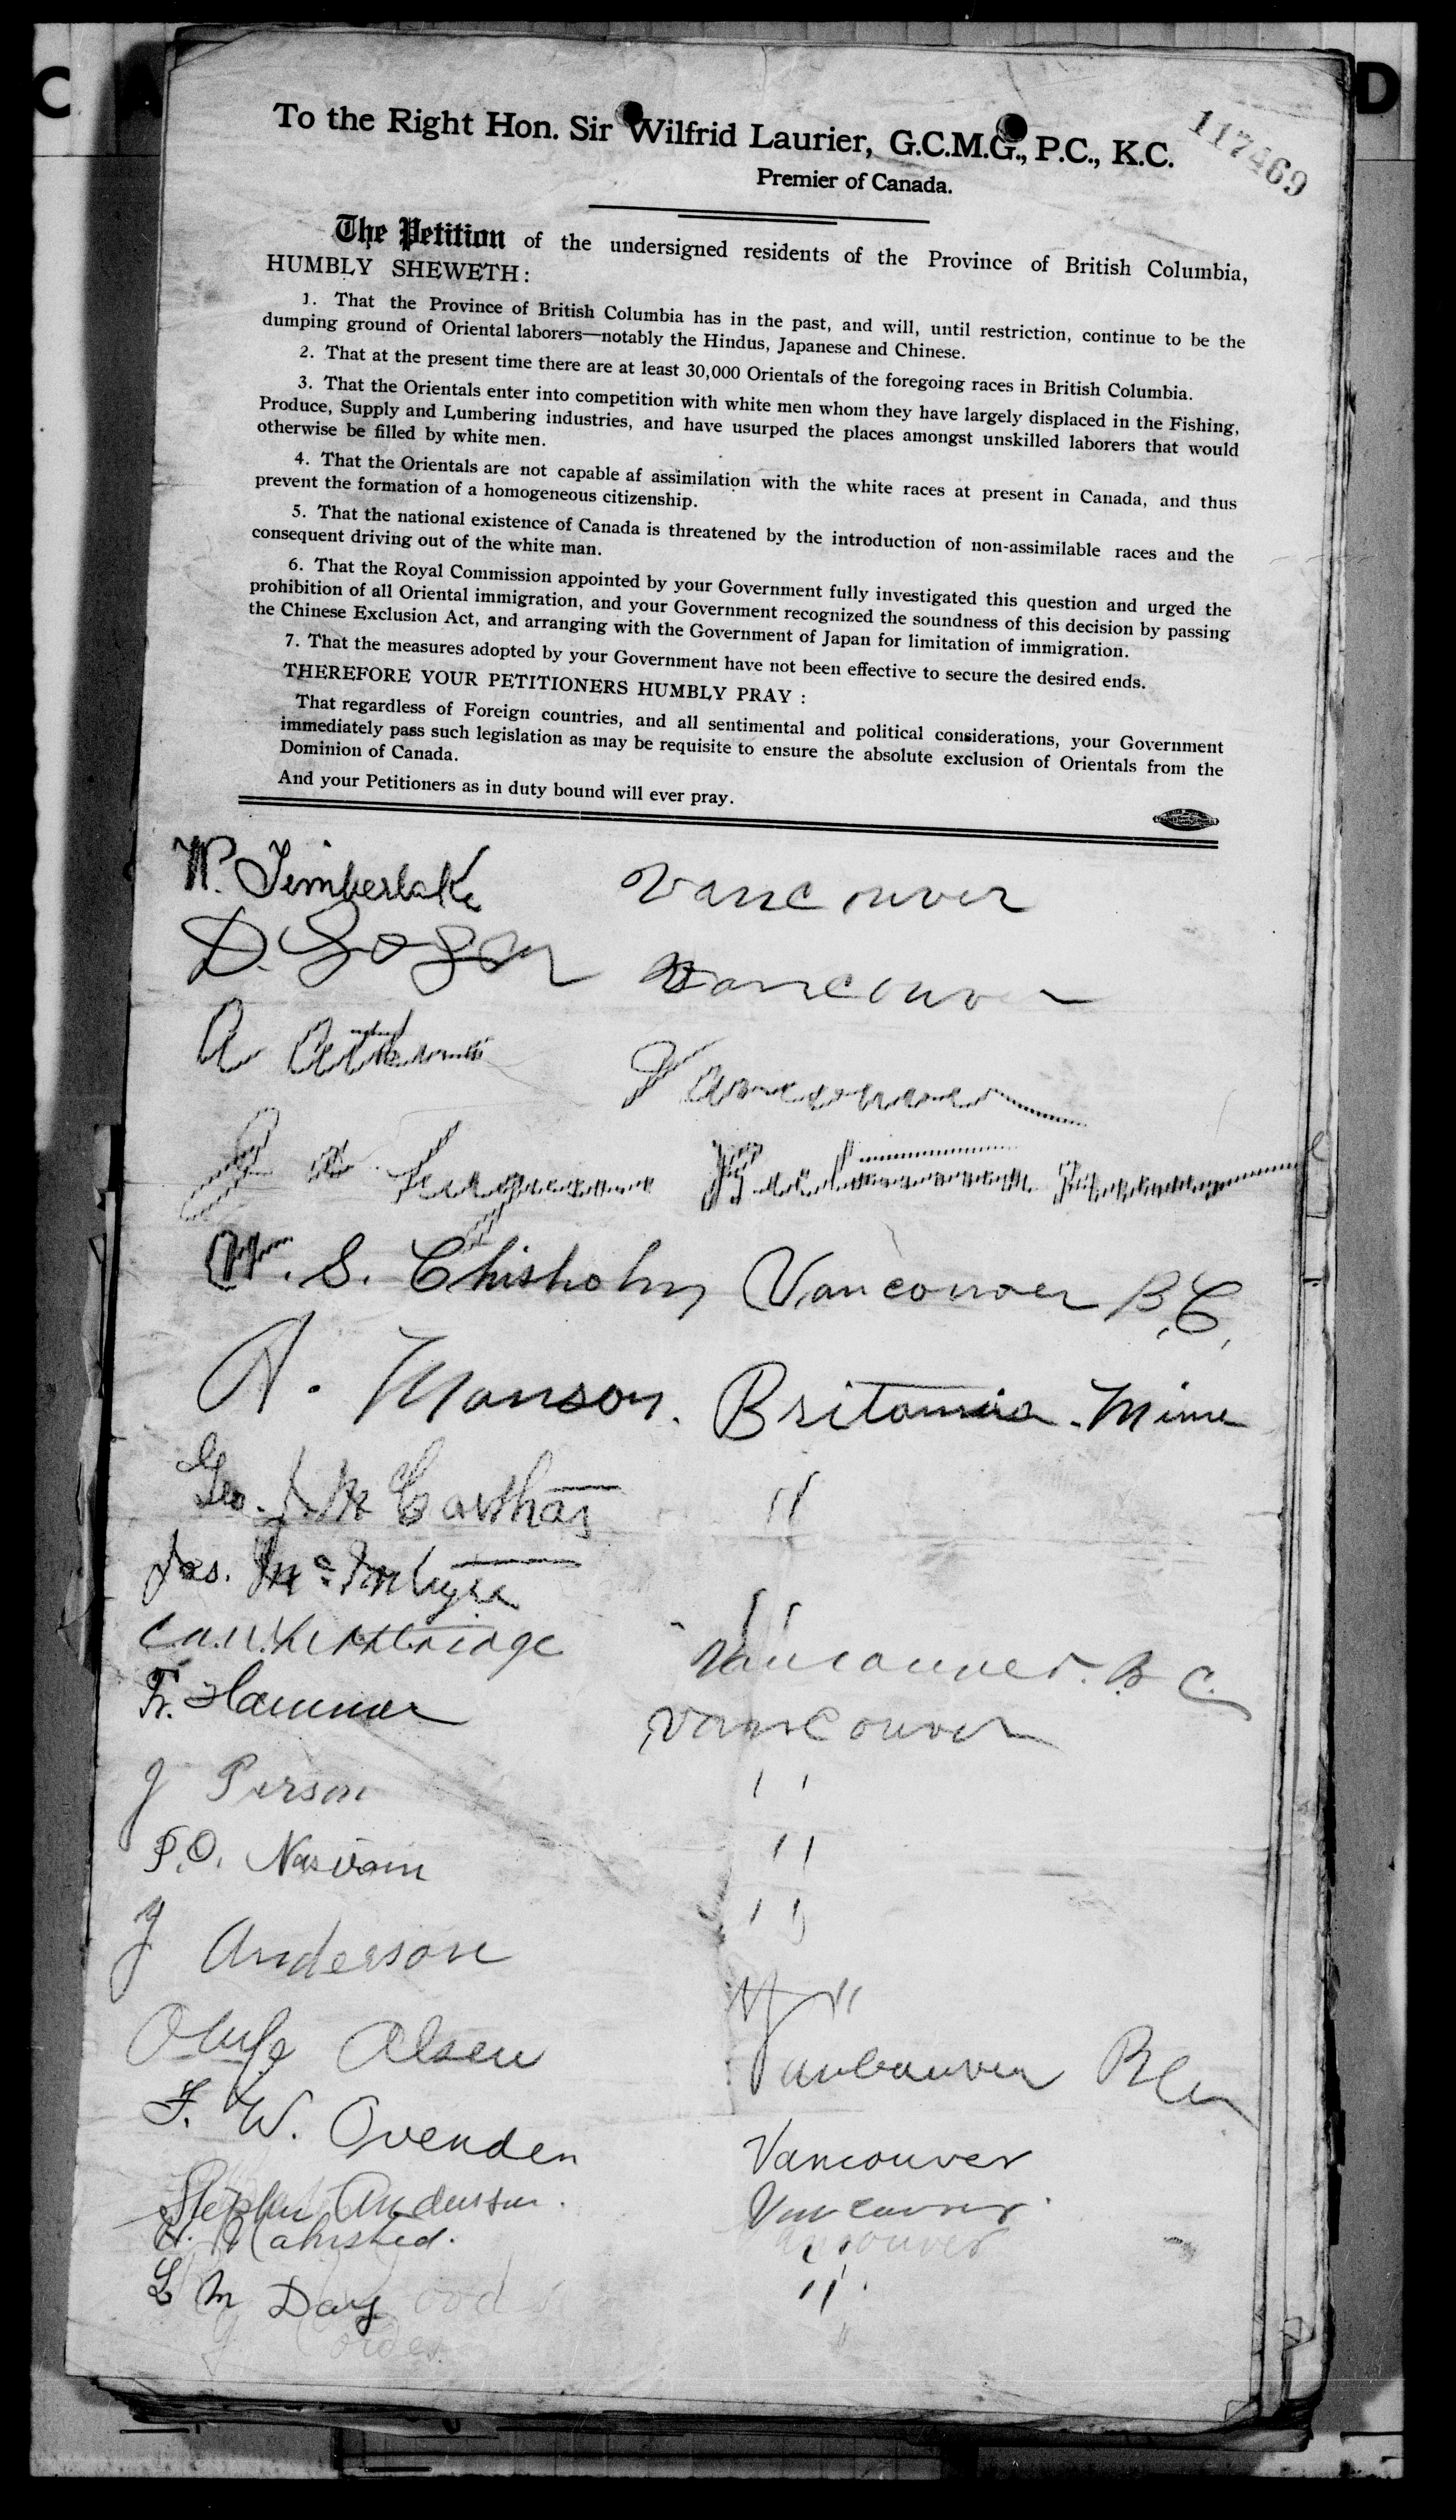 C A D
To the Right Hon. Sir Wilfrid Laurier, G.C.M.G., P.C., K.C.
117469
Premier of Canada.
The Petition of the undersigned residents of the Province of British Columbia,
HUMBLY SHEWETH:
1. That the Province of British Columbia has in the past, and will, until restriction, continue to be the
dumping ground of Oriental laborers—notably the Hindus, Japanese and Chinese.
2. That at the present time there are at least 30,000 Orientals of the foregoing races in British Columbia.
3. That the Orientals enter into competition with white men whom they have largely displaced in the Fishing,
Produce, Supply and Lumbering industries, and have usurped the places amongst unskilled laborers that would
otherwise be filled by white men.
4. That the Orientals are not capable af assimilation with the white races at present in Canada, and thus
prevent the formation of a homogeneous citizenship.
5. That the national existence of Canada is threatened by the introduction of non-assimilable races and the
consequent driving out of the white man.
6. That the Royal Commission appointed by your Government fully investigated this question and urged the
prohibition of all Oriental immigration, and your Government recognized the soundness of this decision by passing
the Chinese Exclusion Act, and arranging with the Government of Japan for limitation of immigration.
7. That the measures adopted by your Government have not been effective to secure the desired ends.
THEREFORE YOUR PETITIONERS HUMBLY PRAY :
That regardless of Foreign countries, and all sentimental and political considerations, your Government
immediately pass such legislation as may be requisite to ensure the absolute exclusion of Orientals from the
Dominion of Canada.
And your Petitioners as in duty bound will ever pray.
W. Timberlake Vancouver
D. Logan Vancouver
A Vancouver
Wm. S. Chisholm Vancouver B.C.
A. Manson. Britannia. Mine
Geo. "
Jas. McIntyre "
Vancouver. B C.
Fr. Hammar Vancouver
J Person "
P.O. "
J Anderson "
Olufe Olsen Vancouver B C
F. W. Ovenden Vancouver
Stephen Anderson. Vancouver.
"
L M Day "